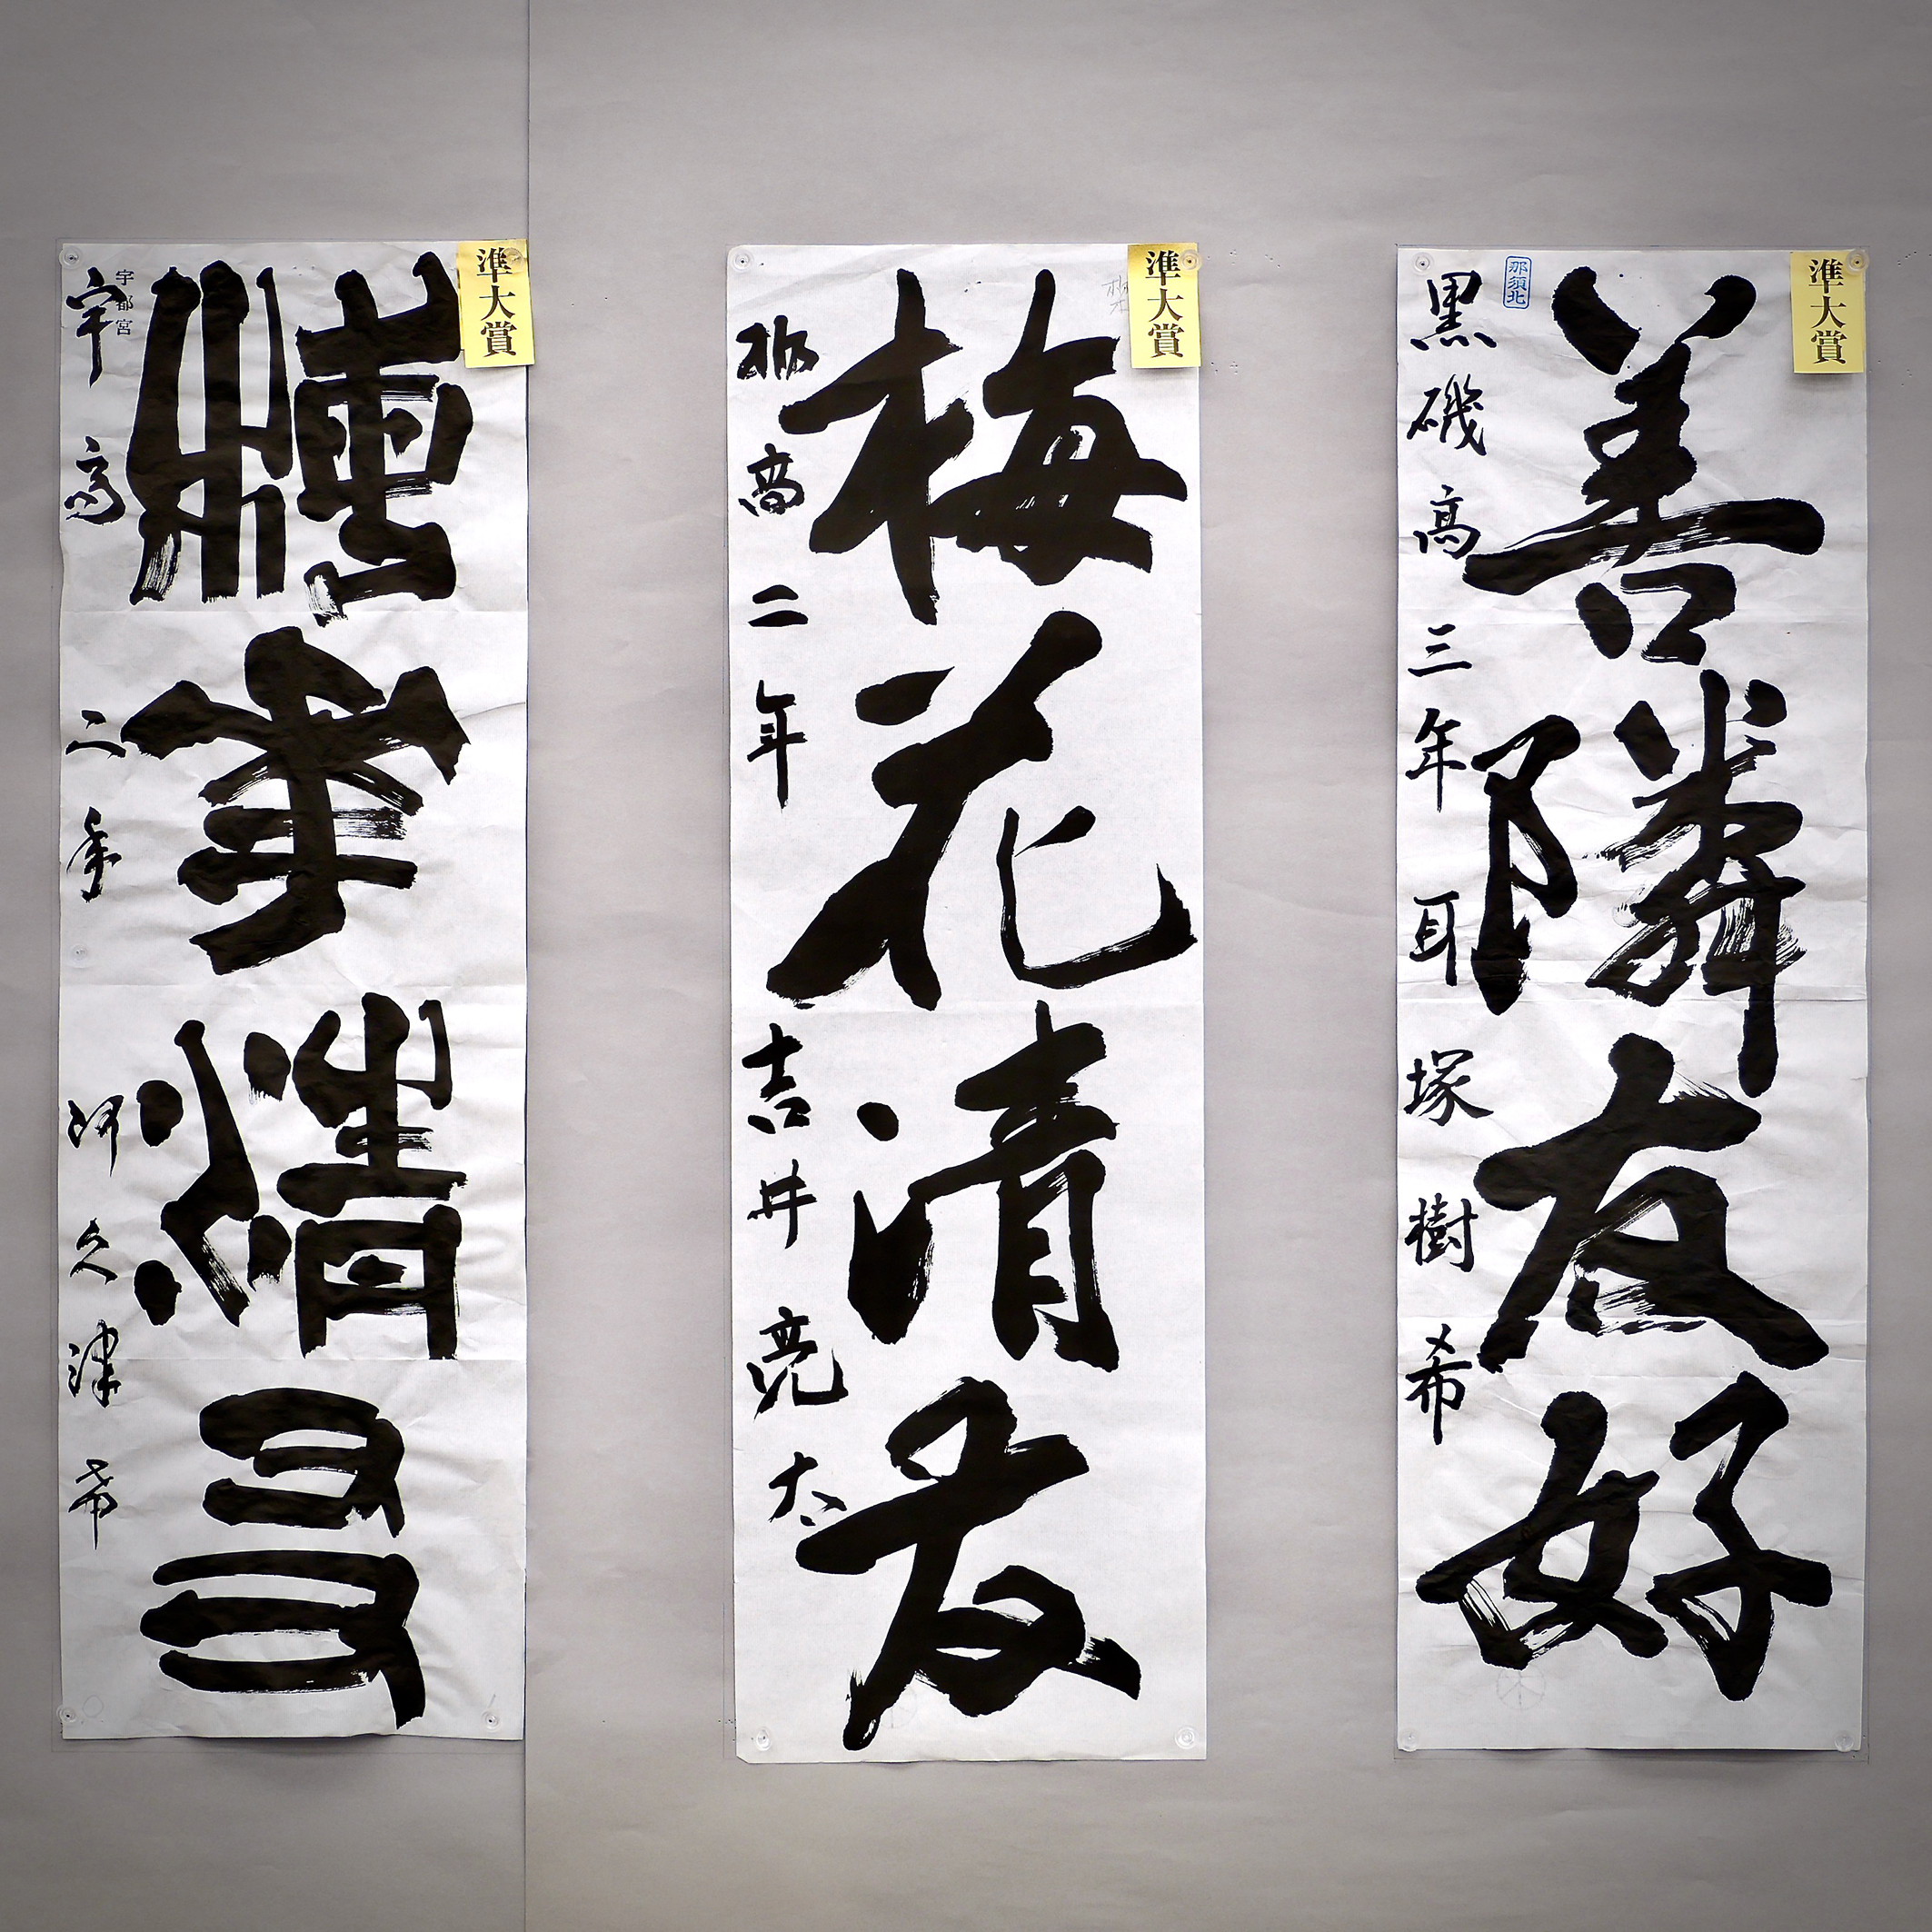 準大賞
善隣友好
那須北
黒磯高三年 耳塚樹希
準大賞
梅花清友
栃高二年 吉井亮太
準大賞
梅華清友
宇都宮
宇高二年 阿久津希